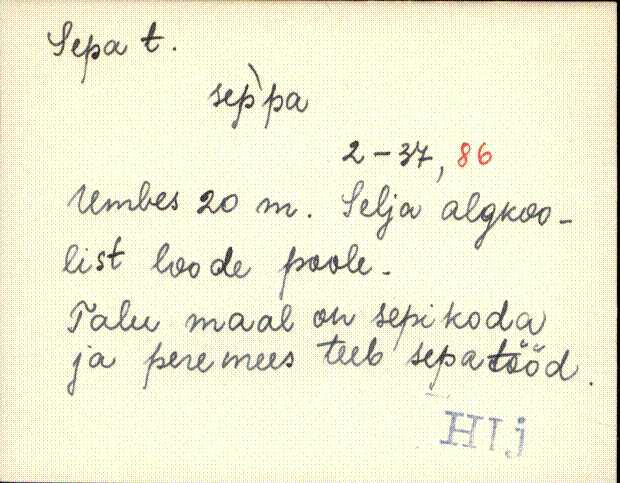 Sepa t.
sep`pa
2-37, 86
Umbes 20 m. Selja algkoo-
list loode poole.
Talu maal on sepikoda
ja peremees teeb sepatööd.
HIj